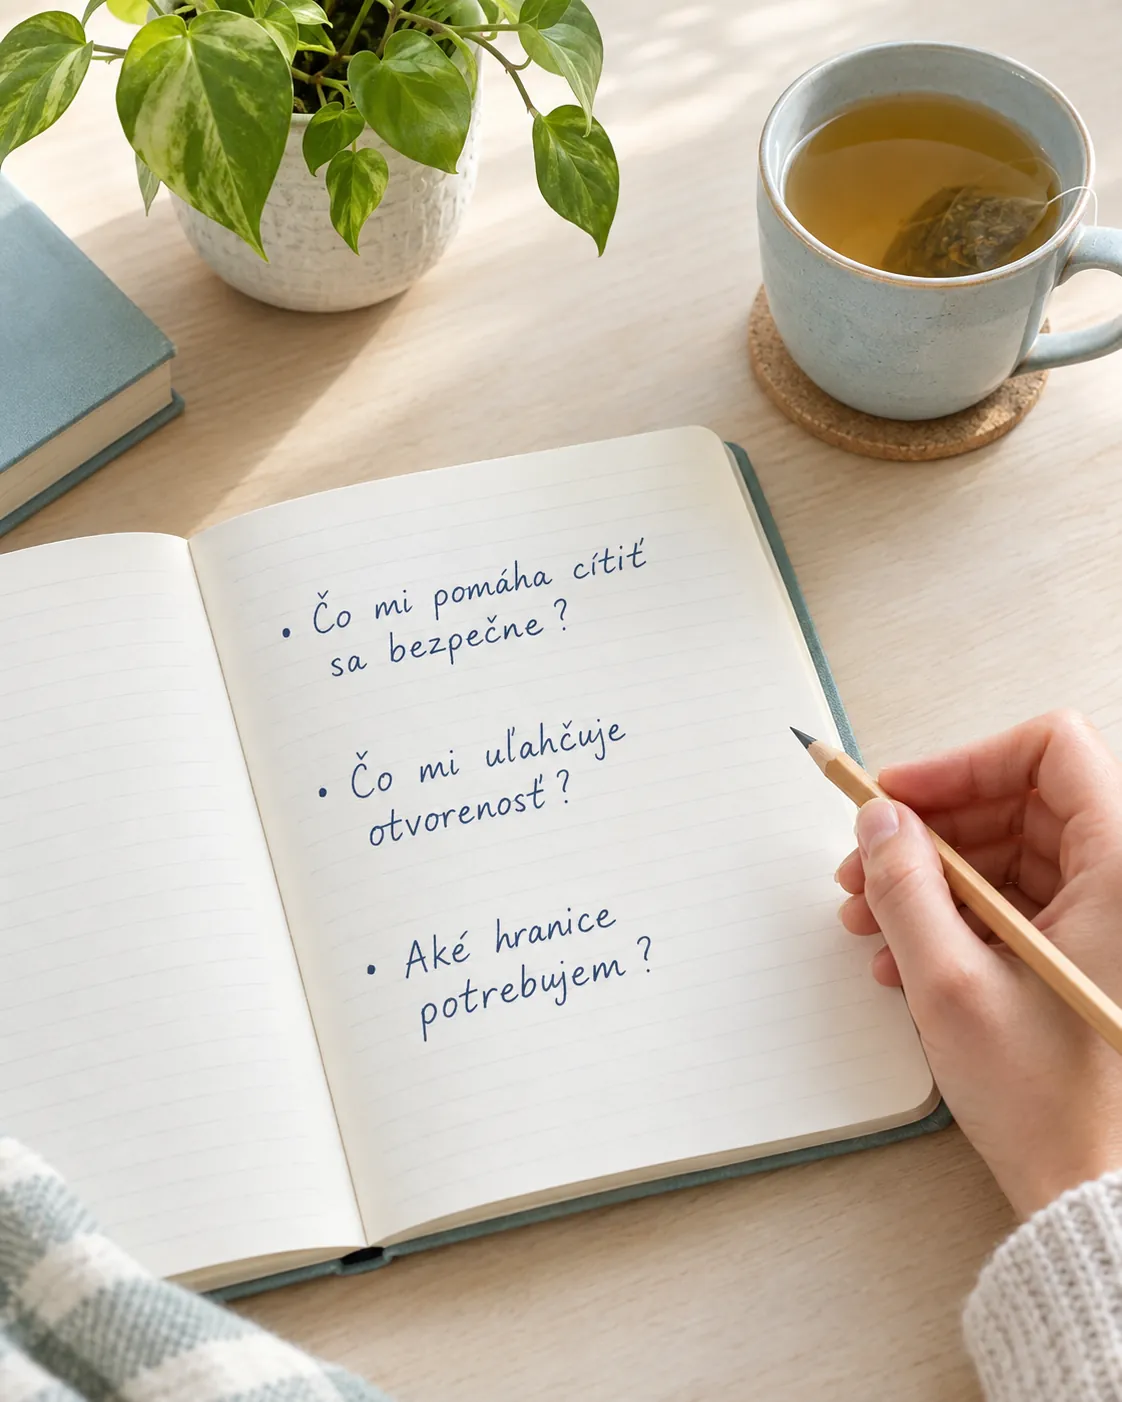 • Čo mi pomáha cítiť
sa bezpečne?
• Čo mi uľahčuje
otvorenosť?
• Aké hranice
potrebujem?